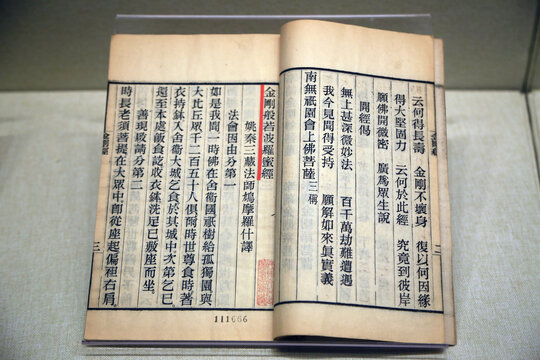 云何得長壽　金剛不壞身　復以何因緣
得大堅固力　云何於此經　究竟到彼岸
願佛開微密　廣爲眾生說
開經偈
無上甚深微妙法　百千萬劫難遭遇
我今見聞得受持　願解如來眞實義
南無祇園會上佛菩薩三稱
金剛經
二
金剛般若波羅蜜經
姚秦三藏法師鳩摩羅什譯
法會因由分第一
如是我聞一時佛在舍衞國祇樹給孤獨園與
大比丘眾千二百五十人俱爾時世尊食時著
衣持鉢入舍衞大城乞食於其城中次第乞已
還至本處飯食訖收衣鉢洗足已敷座而坐
善現啟請分第二
時長老須菩提在大眾中卽從座起偏袒右肩
金剛經
三
111666